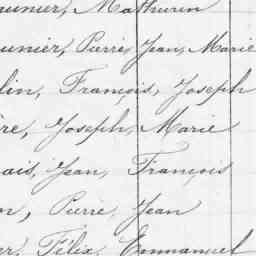 aunier, Mathurin
unier, Pierre, Jean, Marie
lin, François, Joseph
re, Joseph, Marie
ais, Jean, François
on, Pierre, Jean
er, Félix, Emmanuel